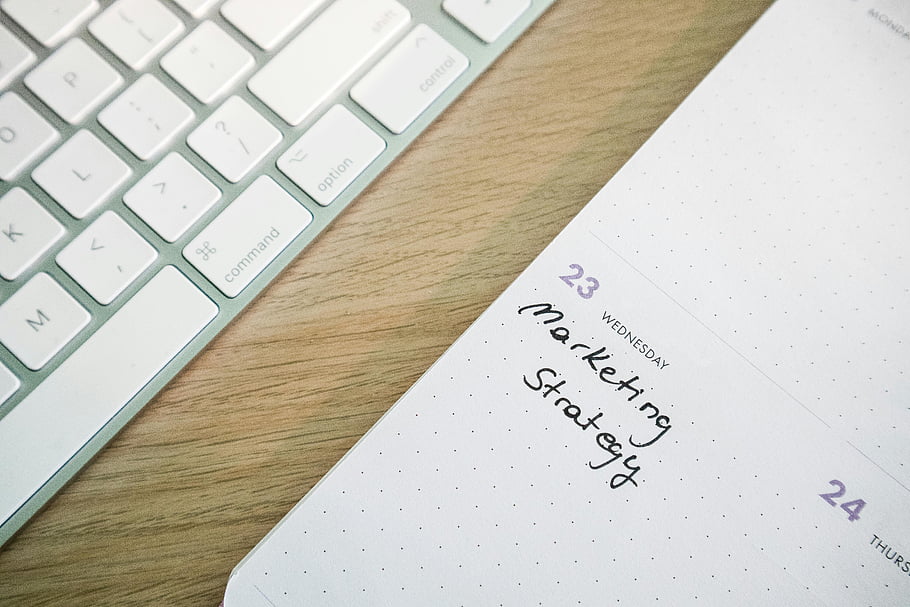 shift
control
option
command
P
O
L
K
M
? /
> .
< ,
MONDA
23
WEDNESDAY
Marketing
Strategy
24
THURS